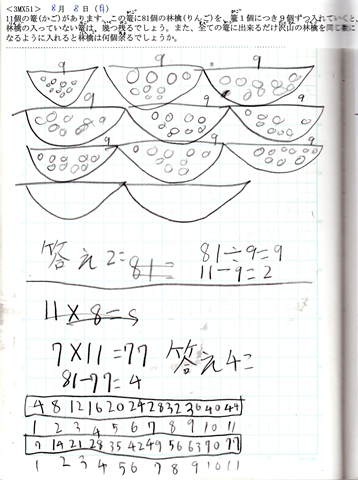 <3MX51> 8月 8日(日)
11個の籠(かご)があります。この籠に81個の林檎(りんご)を、籠1個につき9個ずつ入れていくと
林檎の入っていない籠は、幾つ残るでしょう。また、全ての籠に出来るだけ沢山の林檎を同じ数に
なるように入れると林檎は何個余るでしょうか。
9 9 9
9 9 9
9 9 9
答え2こ 81÷9=9
81= 11-9=2
11×8=
7×11=77 答え4こ
81-77=4
4 8 12 16 20 24 28 32 36 40 44
1 2 3 4 5 6 7 8 9 10 11
7 14 21 28 35 42 49 56 63 70 77
1 2 3 4 5 6 7 8 9 10 11